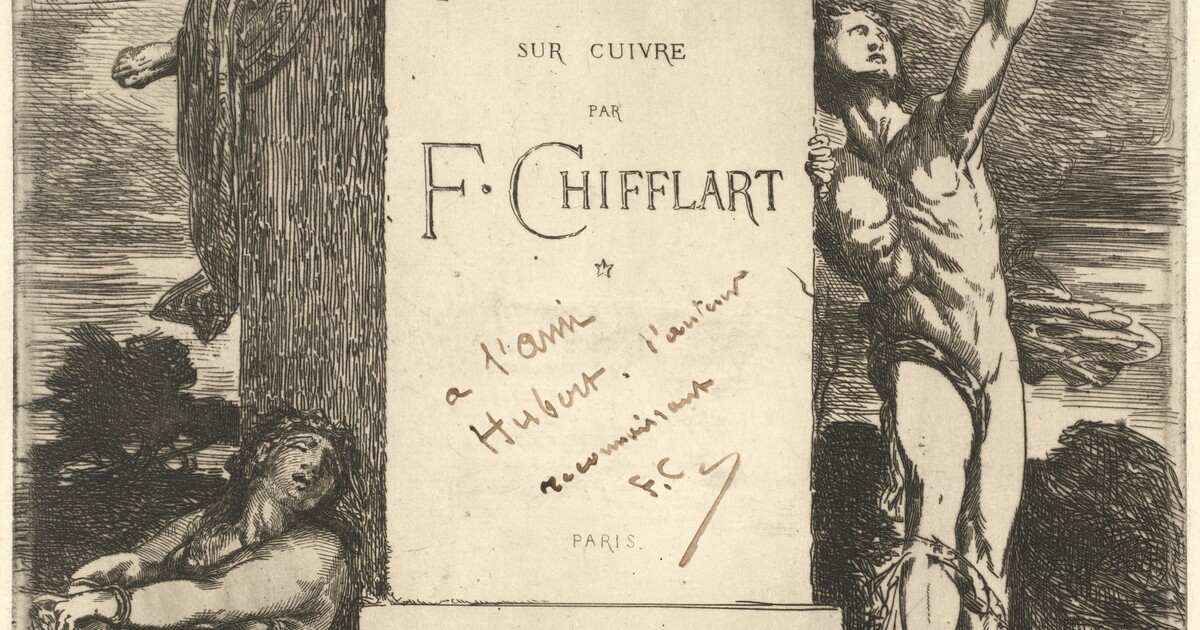 SUR CUIVRE
PAR
F. CHIFFLART
a l'ami
Hubert. l'auteur
reconnaissant
F.C
PARIS.